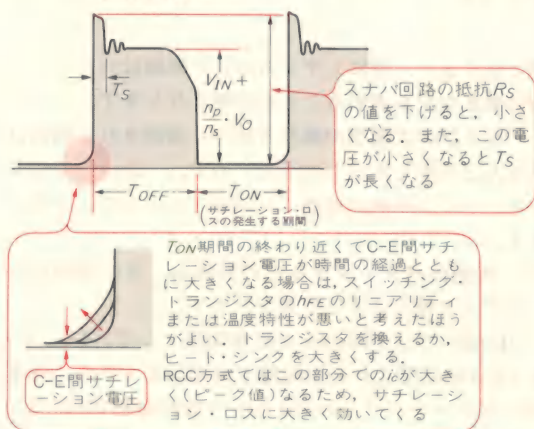 TS
VIN+
np/ns・VO
TOFF
TON
(サチレーション・ロ
スの発生する期間)
スナバ回路の抵抗RS
の値を下げると，小さ
くなる．また，この電
圧が小さくなるとTS
が長くなる
TON期間の終わり近くでC-E間サチ
レーション電圧が時間の経過ととも
に大きくなる場合は，スイッチング・
トランジスタのhFEのリニアリティ
または温度特性が悪いと考えたほう
がよい．トランジスタを換えるか，
ヒート・シンクを大きくする．
RCC方式ではこの部分でのicが大き
く(ピーク値)なるため，サチレーシ
ョン・ロスに大きく効いてくる
C-E間サチレ
ーション電圧